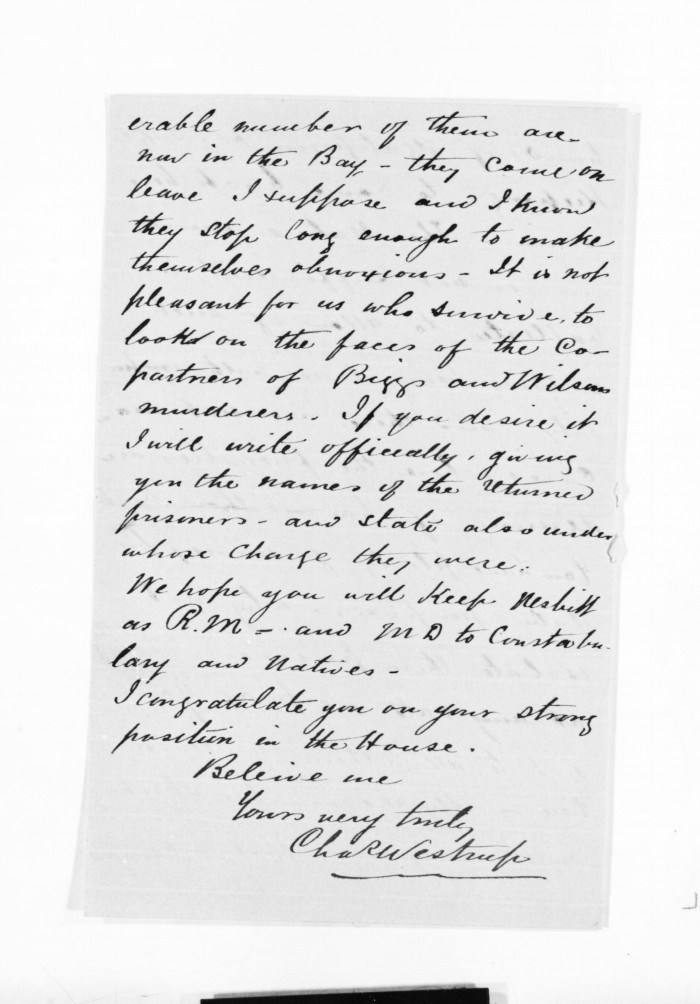 erable number of them are
now in the Bay - they come on
leave I suppose and I know
they stop long enough to make
themselves obnoxious - It is not
pleasant for us who survive, to
look on the faces of the Co-
partners of Biggs and Wilsons
murderers. If you desire it
I will write officially, giving
you the names of the returned
prisoners - and state also under
whose charge they were.
We hope you will keep Nesbitt
as R.M - and MD to Constabu-
lary and Natives -
I congratulate you on your strong
position in the House.
Beleive me
Yours very truly
Chas Westrup